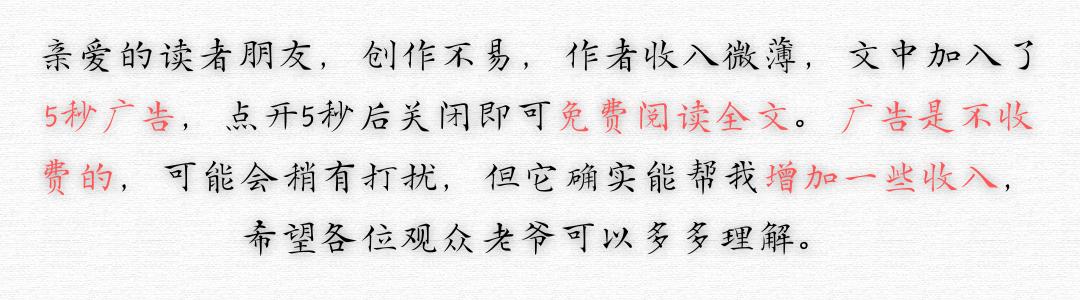 亲爱的读者朋友，创作不易，作者收入微薄，文中加入了
5秒广告，点开5秒后关闭即可免费阅读全文。广告是不收
费的，可能会稍有打扰，但它确实能帮我增加一些收入，
希望各位观众老爷可以多多理解。